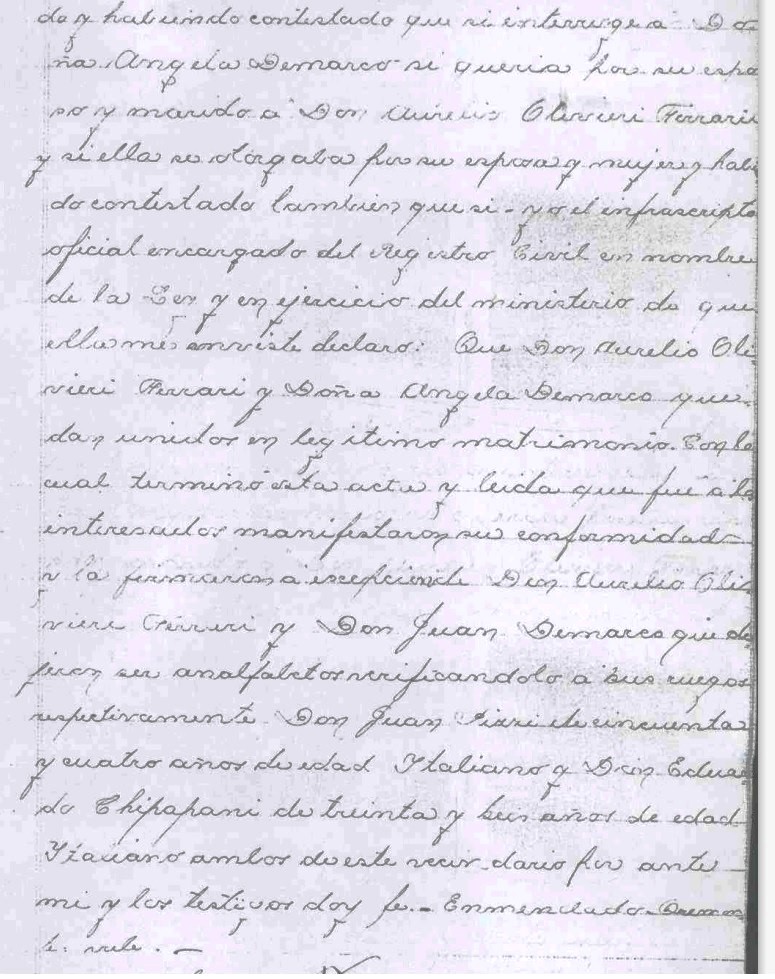 do y habiendo contestado que si interrogue a Do
ña Angela Demarco si queria por su espo
so y marido a Don Aurelio Olivieri Ferrari
y si ella se otorgaba por su esposa y mujer y habi
do contestado tambien que si - yo el infrascripto
oficial encargado del Registro Civil en nombre
de la Ley y en ejercicio del ministerio de que
ella me enviste declaro: Que Don Aurelio Oli
vieri Ferrari y Doña Angela Demarco que
dan unidos en legitimo matrimonio. Con lo
cual terminó esta acta y leida que fue a lo
interesados manifestaron su conformidad
y la firmaron a excepcion de Don Aurelio Oli
vieri Ferrari y Don Juan Demarco que di
jeron ser analfabetos verificandolo a sus ruegos
respetivamente Don Juan de cincuenta
y cuatro años de edad Italiano y Don Eduar
do Chipapani de treinta y seis años de edad
Italiano ambos de este por ante
mi y los testigos doy fe. - Enmendado -
vale. -